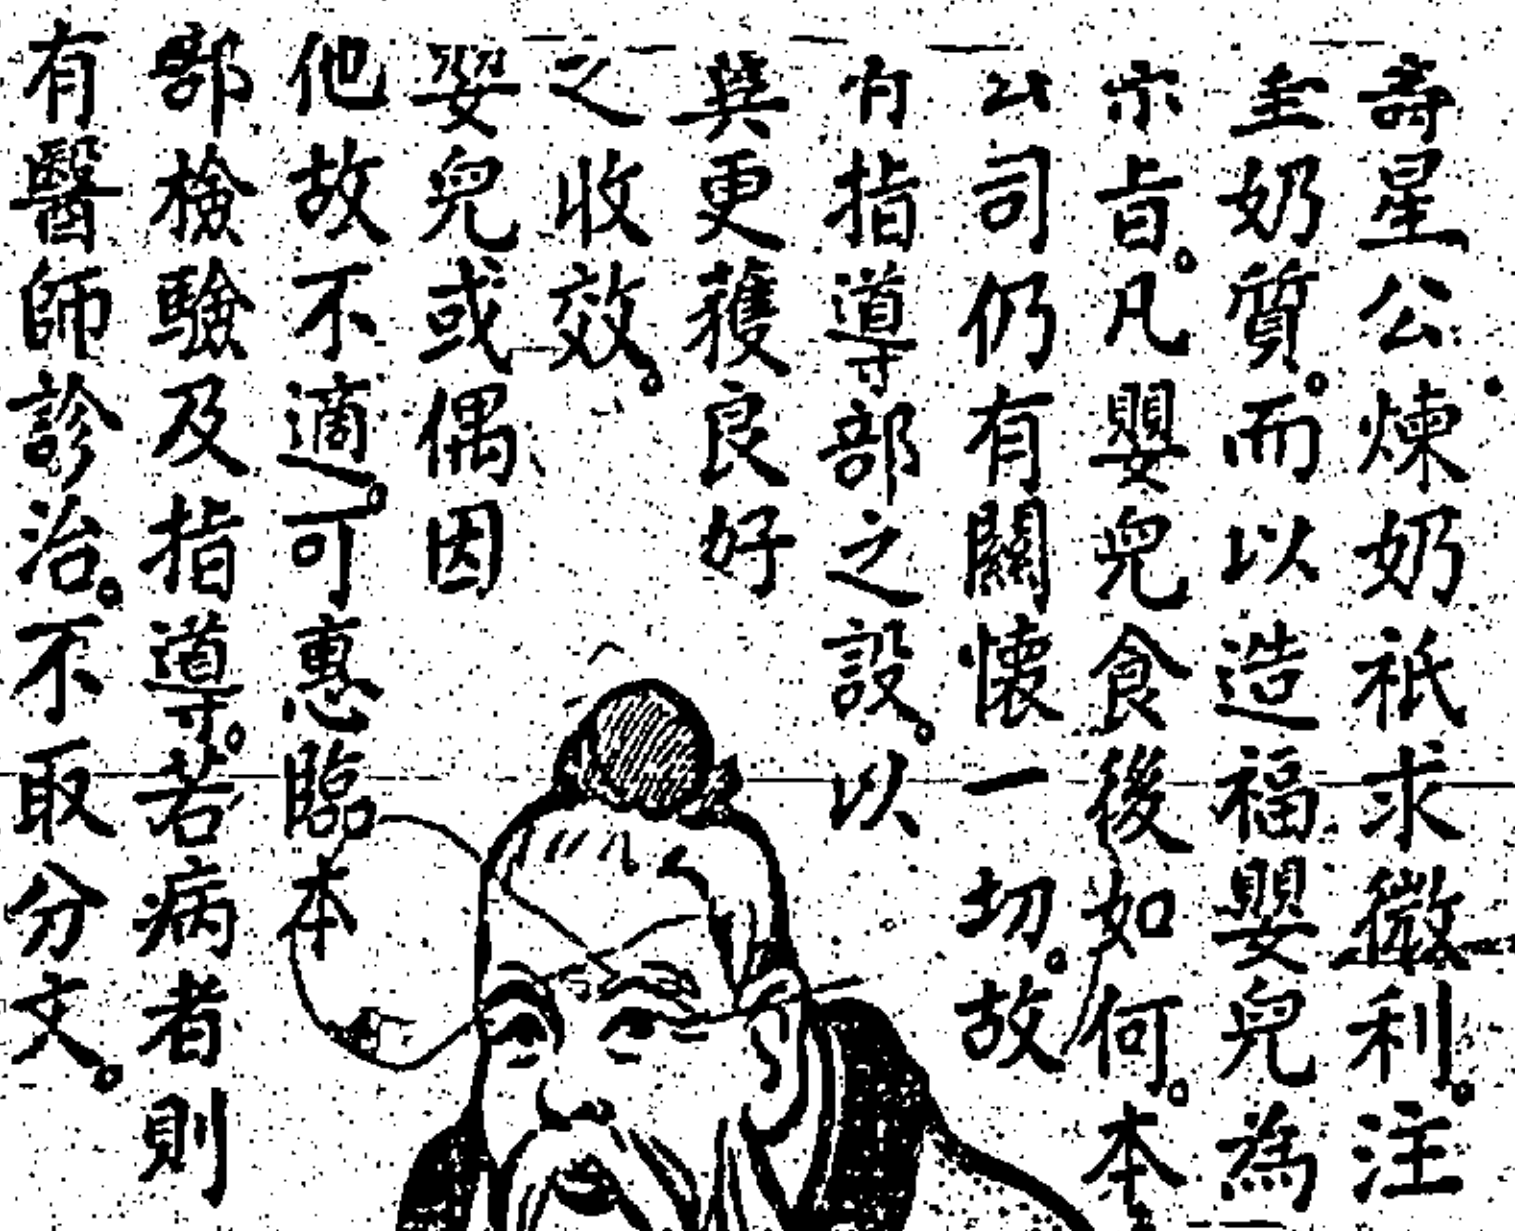 壽星公煉奶祇求微利。注
重奶質。而以造福嬰兒為
宗旨。凡嬰兒食後如何。本
公司仍有關懷一切。故
有指導部之設。以
冀更獲良好
之收效。
嬰兒或偶因
他故不適。可惠臨本
部檢驗及指導。若病者則
有醫師診治。不取分文。